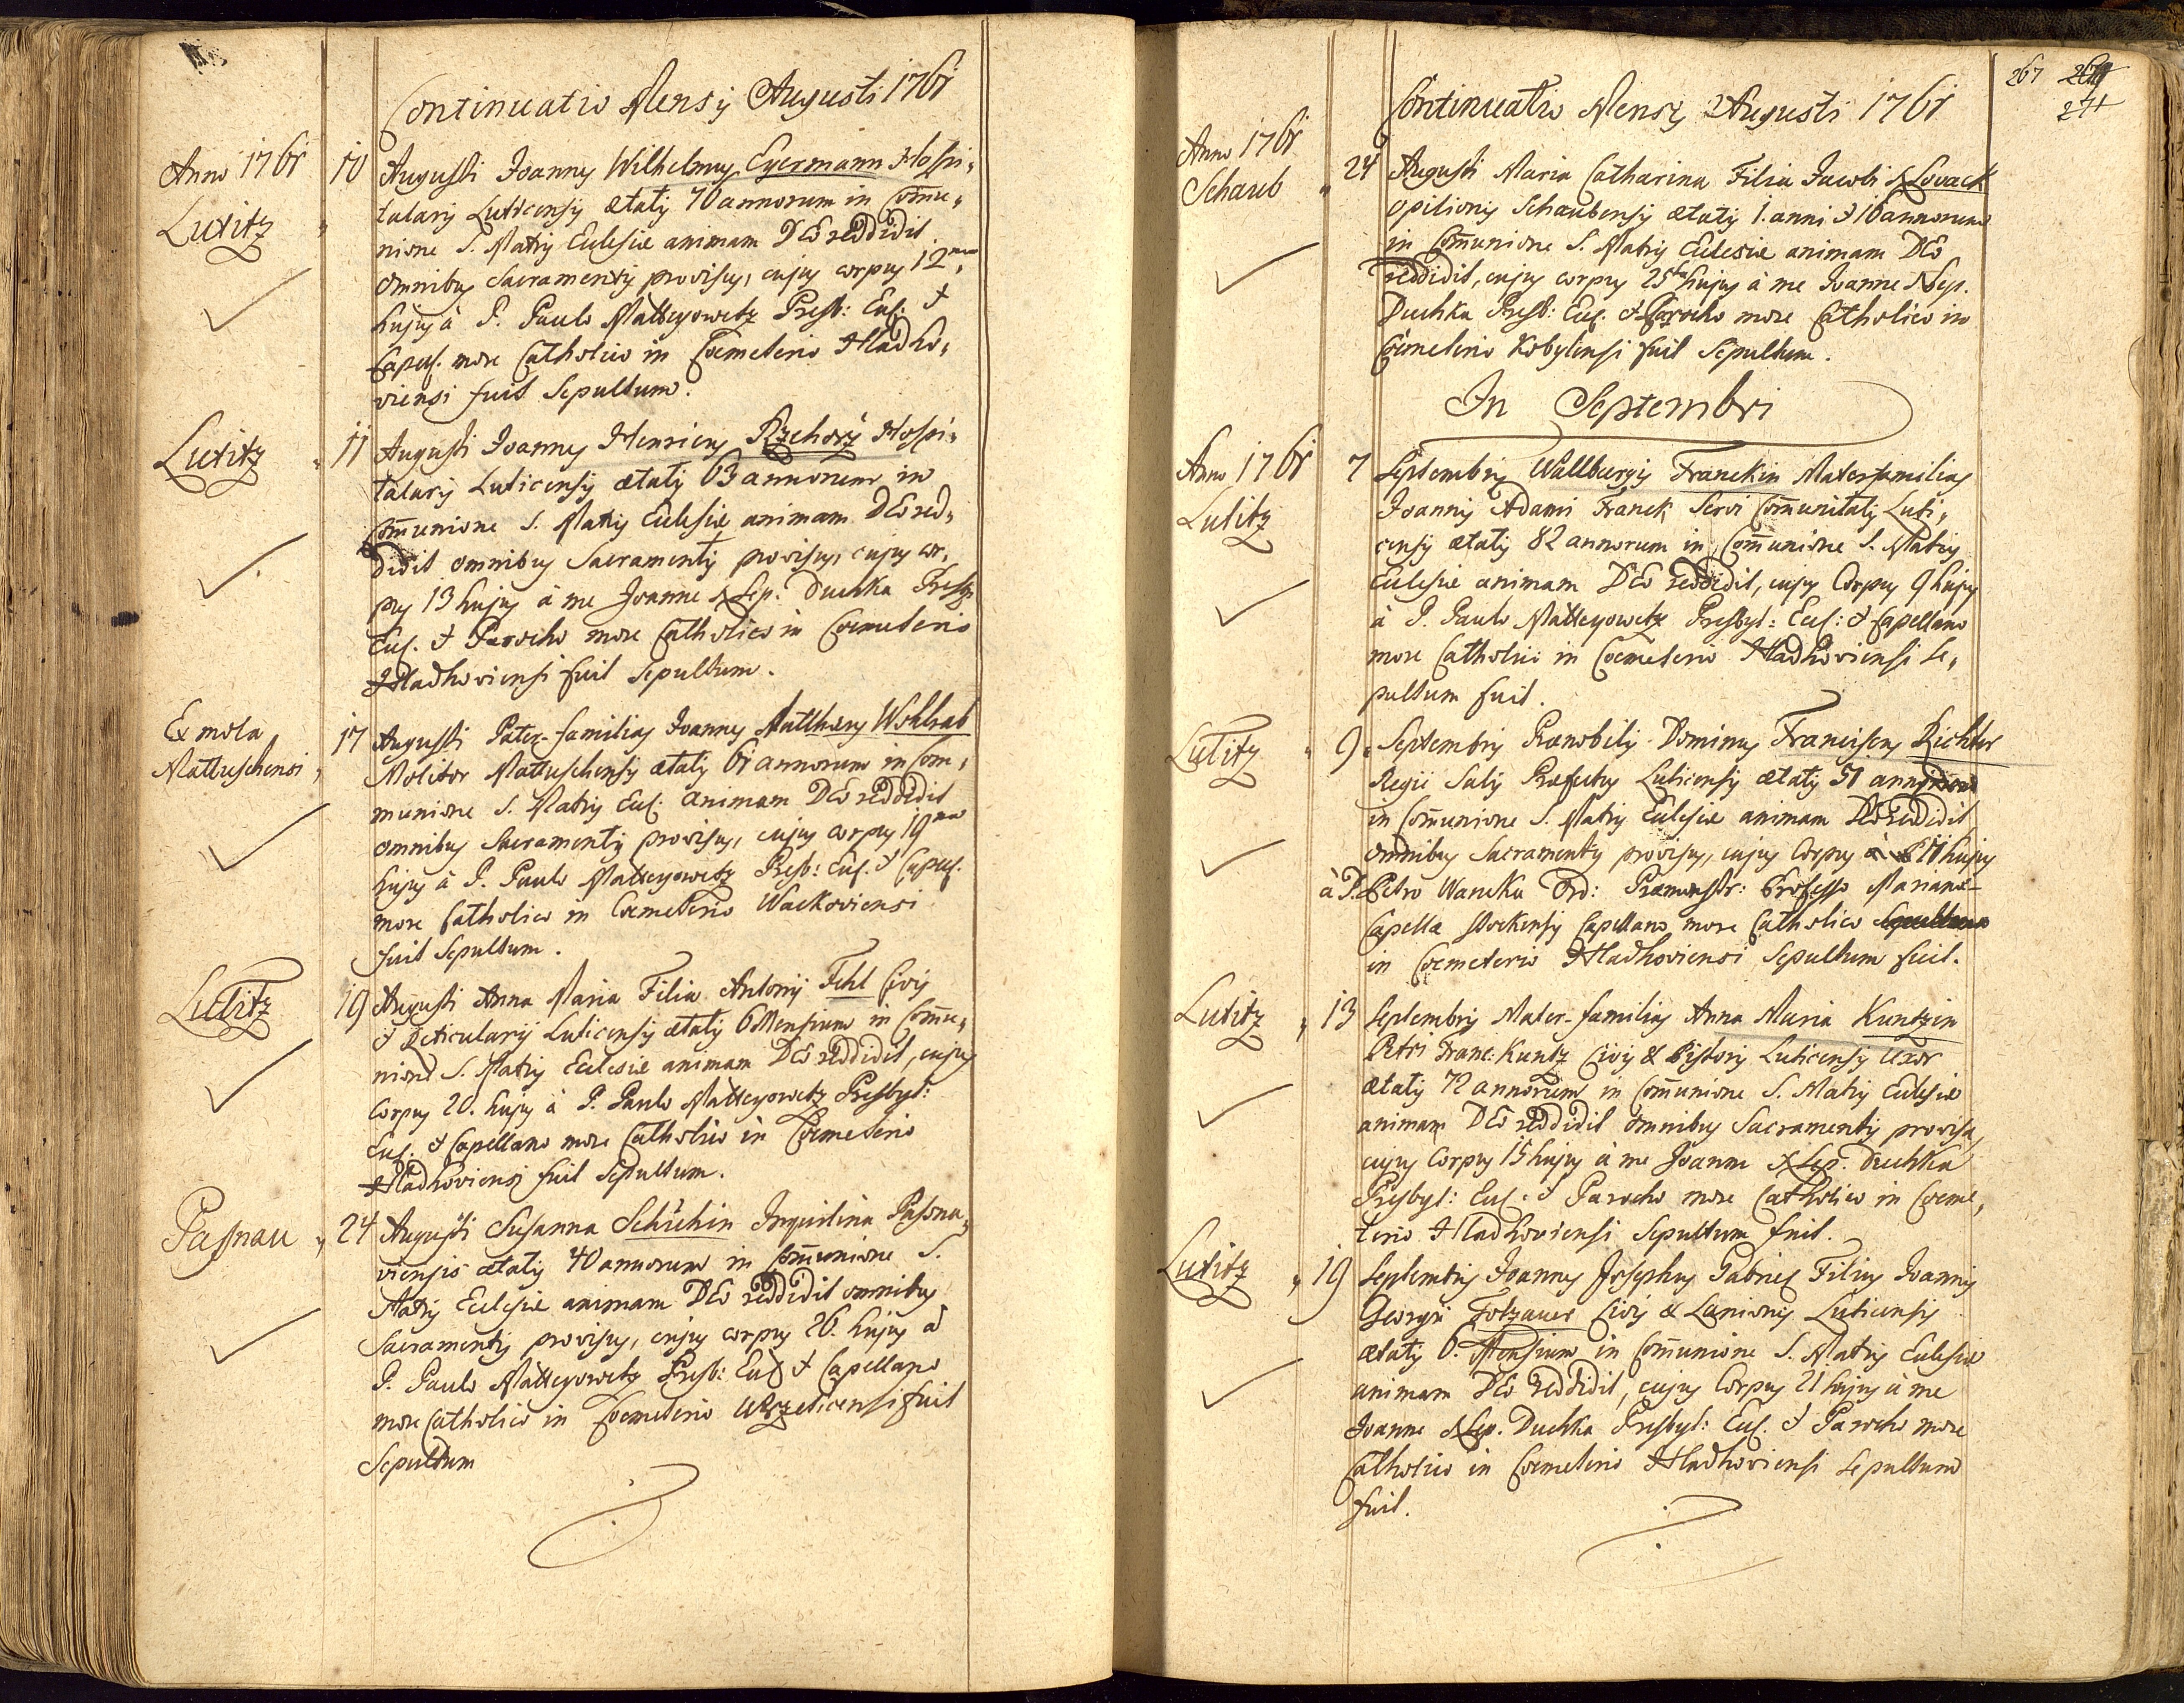 Continuatio Mensis Augusti 1761
Anno 1761
Lutitz
10 Augusti Joannes Wilhelmus Eyermann Hospi,
talaris Luticensis ætatis 70 annorum in Com̄u,
nione S. Matris Ecclesiæ animam DEo reddidit
omnibus Sacramentis provisus, cujus corpus 12ma
hujus à P. Paulo Matteyowetz Presb: Eccl: &
Capell. more Catholico in Cœmeterio Hladho,
viensi fuit Sepultum.
Lutitz
11 Augusti Joannes Henricus Rzehorz Hospi,
talaris Luticensis ætatis 63 annorum in
Com̄unione S. Matris Ecclesiæ animam DEo red,
didit omnibus Sacramentis provisus, cujus cor,
pus 13 hujus à me Joanne Nep. Duchka Presb.
Eccl. & Parocho more Catholico in Cœmeterio
Hladhoviensi fuit Sepultum.
Ex mola
Mattuschensi
17 Augusti Pater-familias Joannes Matthæus Wohlrab
Molitor Mattuschensis ætatis 61 annorum in Com,
munione S. Matris Eccl: animam DEo reddidit
omnibus Sacramentis provisus, cujus corpus 19na
hujus à P. Paulo Matteyowetz Presb: Eccl. & Capell.
more Catholico in Cœmeterio Wackoviensi
fuit Sepultum.
Lutitz
19 Augusti Anna Maria Filia Antonij Fehl Civis
& Reticularij Luticensis ætatis 6 Mensium in Com̄u,
nione S. Matris Ecclesiæ animam DEo reddidit, cujus
Corpus 20. hujus à P. Paulo Matteyowetz Presbyt:
Eccl. & Capellano more Catholico in Cœmeterio
Hladhoviensi fuit Sepultum.
Passnau
24 Augusti Susanna Schichin Inquilina Passna,
viensis ætatis 40 annorum in Com̄unione S.
Matris Ecclesiæ animam DEo reddidit omnibus
Sacramentis provisus, cujus corpus 26. hujus à
P. Paulo Matteyowetz Presb: Eccl & Capellano
more Catholico in Cœmeterio fuit
Sepultum
267
271
Continuatio Mensis Augusti 1761
Anno 1761
Schaub
24 Augusti Maria Catharina Filia Jacobi Slovack
opilionis Schaubensis ætatis 1. anni & 16 annorum
in Com̄unione S. Matris Ecclesiæ animam DEo
reddidit, cujus corpus 25ta hujus à me Joanne Nep.
Duchka Presb: Eccl. & Parocho more Catholico in
Cœmeterio Kobylensi fuit Sepultum.
In Septembri
Anno 1761
Lutitz
7 Septembris Wallburgis Franckin Materfamilias
Joannis Adami Franck Servi Com̄unitatis Luti,
censis ætatis 82 annorum in Com̄unione S. Matris
Ecclesiæ animam DEo reddidit, cujus Corpus 9 hujus
à P. Paulo Matteyowetz Presbyt: Eccl: & Capellano
more Catholico in Cœmeterio Hladhoviensi Se,
pultum fuit.
Lutitz
9. Septembris Prænobilis Dominus Franciscus Richter
Regii Salis Præfectus Luticensis ætatis 51 annorum
in Com̄unione S. Matris Ecclesiæ animam DEo reddidit
omnibus Sacramentis provisus, cujus Corpus 11 hujus
à P. Petro Waneka Ord: Præmonstr: Professo Mariano-
Capella Stockensis Capellano more Catholico
in Cœmeterio Hladhoviensi Sepultum fuit.
Lutitz
13 Septembris Mater-familias Anna Maria Kuntzin
Petri Franc: Kuntz Civis & Pistoris Luticensis Uxor
ætatis 72 annorum in Com̄unione S. Matris Ecclesiæ
animam DEo reddidit omnibus Sacramentis provisa,
cujus Corpus 15 hujus à me Joanne Nep. Duchka
Presbyt: Eccl. & Parocho more Catholico in Cœme,
terio Hladhoviensi Sepultum fuit.
Lutitz
19 Septembris Joannes Josephus Gabriel Filius Joannis
Georgii Totzauer Civis & Lanionis Luticensis
ætatis 6. Mensium in Com̄unione S. Matris Ecclesiæ
animam DEo reddidit, cujus Corpus 21 hujus à me
Joanne Nep. Duchka Presbyt: Eccl. & Parocho more
Catholico in Cœmeterio Hladhoviensi Sepultum
fuit.